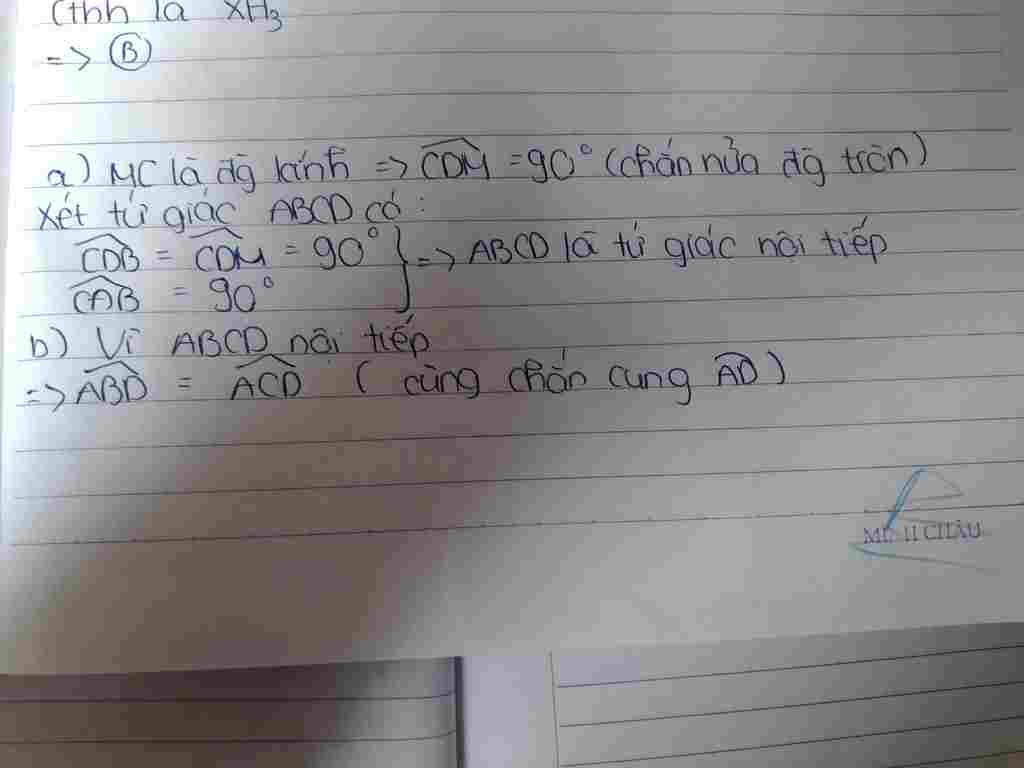 (thh là XH₃
=> Ⓑ
a) MC là đg kính => \widehat{CDM} = 90° (chắn nửa đg tròn)
Xét tứ giác ABCD có:
\widehat{CDB} = \widehat{CDM} = 90° } => ABCD là tứ giác nội tiếp
\widehat{CAB} = 90°
b) Vì ABCD nội tiếp
=> \widehat{ABD} = \widehat{ACD} (cùng chắn cung \widehat{AD})
MINH CHÂU